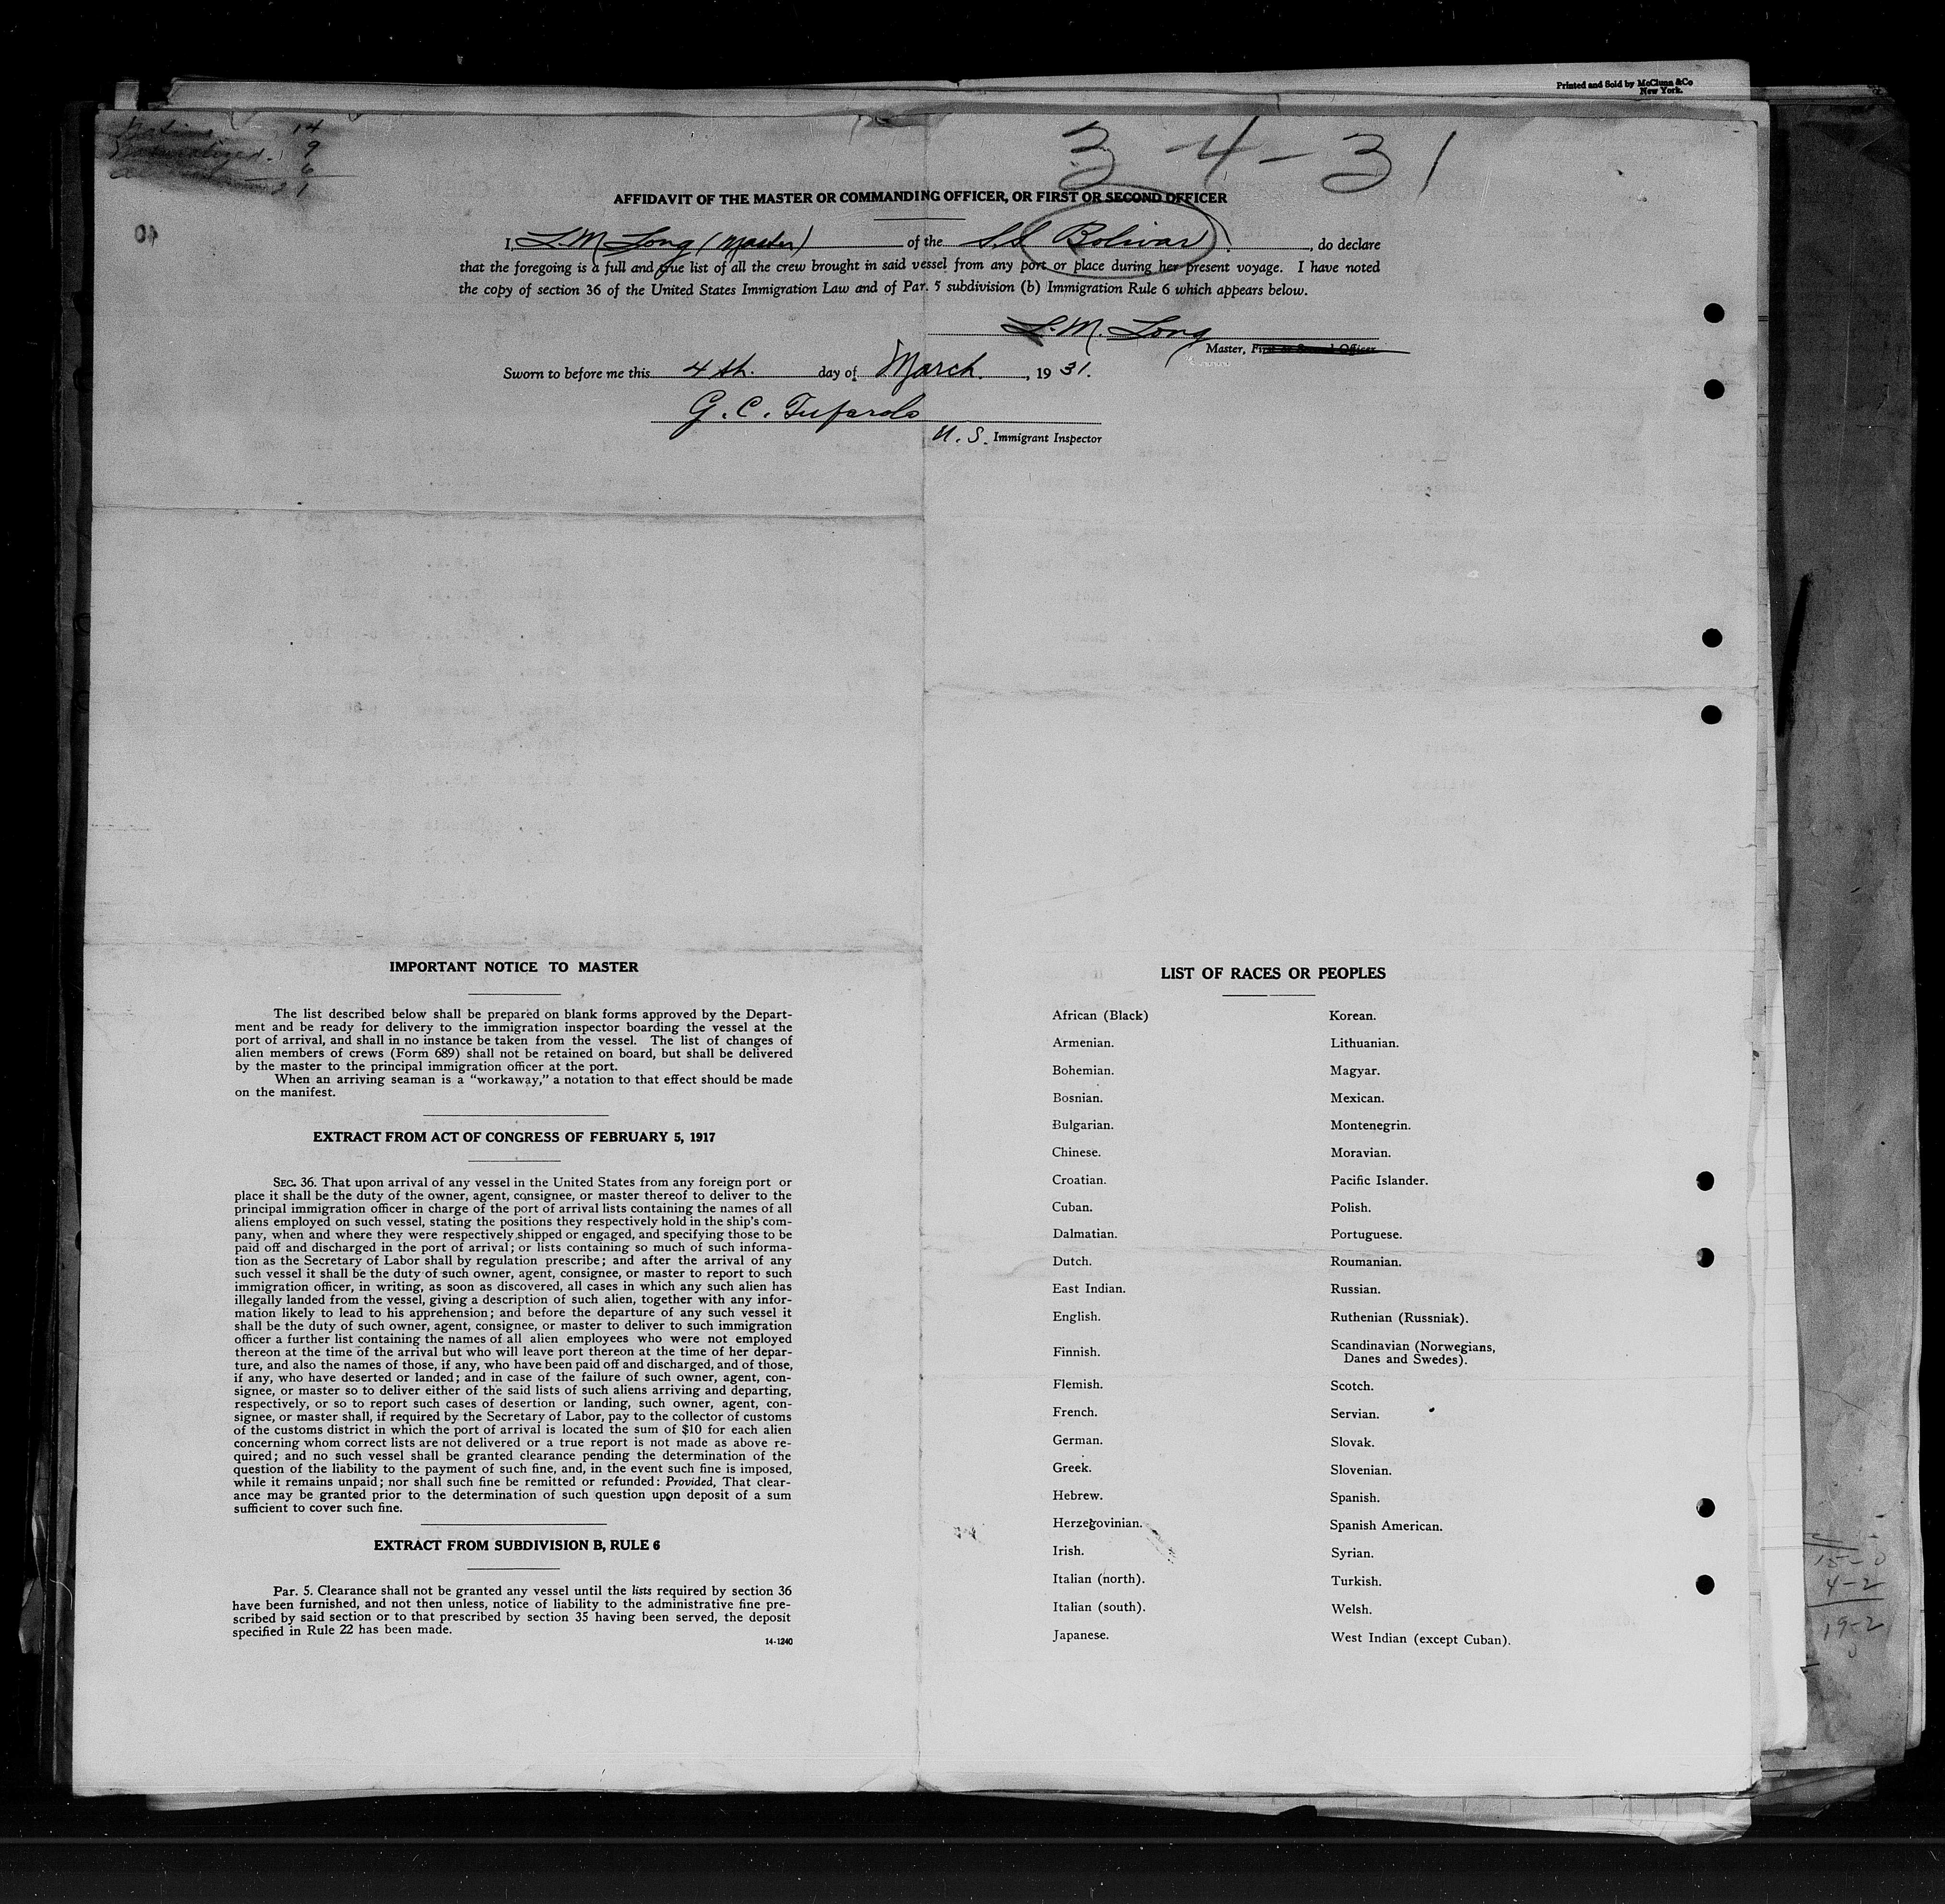 Printed and Sold by McClung & Co
New York.
14
9
6
3-4-31
AFFIDAVIT OF THE MASTER OR COMMANDING OFFICER, OR FIRST OR SECOND OFFICER
I, L. M. Long (Master) of the S.S. Bolivar, do declare
that the foregoing is a full and true list of all the crew brought in said vessel from any port or place during her present voyage. I have noted
the copy of section 36 of the United States Immigration Law and of Par. 5 subdivision (b) Immigration Rule 6 which appears below.
L. M. Long
Master, First or Second Officer
Sworn to before me this 4th. day of March., 1931.
G. C. Tufarolo
U. S. Immigrant Inspector
IMPORTANT NOTICE TO MASTER
The list described below shall be prepared on blank forms approved by the Depart-
ment and be ready for delivery to the immigration inspector boarding the vessel at the
port of arrival, and shall in no instance be taken from the vessel. The list of changes of
alien members of crews (Form 689) shall not be retained on board, but shall be delivered
by the master to the principal immigration officer at the port.
When an arriving seaman is a "workaway," a notation to that effect should be made
on the manifest.
EXTRACT FROM ACT OF CONGRESS OF FEBRUARY 5, 1917
SEC. 36. That upon arrival of any vessel in the United States from any foreign port or
place it shall be the duty of the owner, agent, consignee, or master thereof to deliver to the
principal immigration officer in charge of the port of arrival lists containing the names of all
aliens employed on such vessel, stating the positions they respectively hold in the ship's com-
pany, when and where they were respectively shipped or engaged, and specifying those to be
paid off and discharged in the port of arrival; or lists containing so much of such informa-
tion as the Secretary of Labor shall by regulation prescribe; and after the arrival of any
such vessel it shall be the duty of such owner, agent, consignee, or master to report to such
immigration officer, in writing, as soon as discovered, all cases in which any such alien has
illegally landed from the vessel, giving a description of such alien, together with any infor-
mation likely to lead to his apprehension; and before the departure of any such vessel it
shall be the duty of such owner, agent, consignee, or master to deliver to such immigration
officer a further list containing the names of all alien employees who were not employed
thereon at the time of the arrival but who will leave port thereon at the time of her depar-
ture, and also the names of those, if any, who have been paid off and discharged, and of those,
if any, who have deserted or landed; and in case of the failure of such owner, agent, con-
signee, or master so to deliver either of the said lists of such aliens arriving and departing,
respectively, or so to report such cases of desertion or landing, such owner, agent, con-
signee, or master shall, if required by the Secretary of Labor, pay to the collector of customs
of the customs district in which the port of arrival is located the sum of $10 for each alien
concerning whom correct lists are not delivered or a true report is not made as above re-
quired; and no such vessel shall be granted clearance pending the determination of the
question of the liability to the payment of such fine, and, in the event such fine is imposed,
while it remains unpaid; nor shall such fine be remitted or refunded: Provided, That clear-
ance may be granted prior to the determination of such question upon deposit of a sum
sufficient to cover such fine.
EXTRACT FROM SUBDIVISION B, RULE 6
Par. 5. Clearance shall not be granted any vessel until the lists required by section 36
have been furnished, and not then unless, notice of liability to the administrative fine pre-
scribed by said section or to that prescribed by section 35 having been served, the deposit
specified in Rule 22 has been made.
14-1240
LIST OF RACES OR PEOPLES
African (Black)
Armenian.
Bohemian.
Bosnian.
Bulgarian.
Chinese.
Croatian.
Cuban.
Dalmatian.
Dutch.
East Indian.
English.
Finnish.
Flemish.
French.
German.
Greek.
Hebrew.
Herzegovinian.
Irish.
Italian (north).
Italian (south).
Japanese.
Korean.
Lithuanian.
Magyar.
Mexican.
Montenegrin.
Moravian.
Pacific Islander.
Polish.
Portuguese.
Roumanian.
Russian.
Ruthenian (Russniak).
Scandinavian (Norwegians,
Danes and Swedes).
Scotch.
Servian.
Slovak.
Slovenian.
Spanish.
Spanish American.
Syrian.
Turkish.
Welsh.
West Indian (except Cuban).
15-0
4-2
19-2